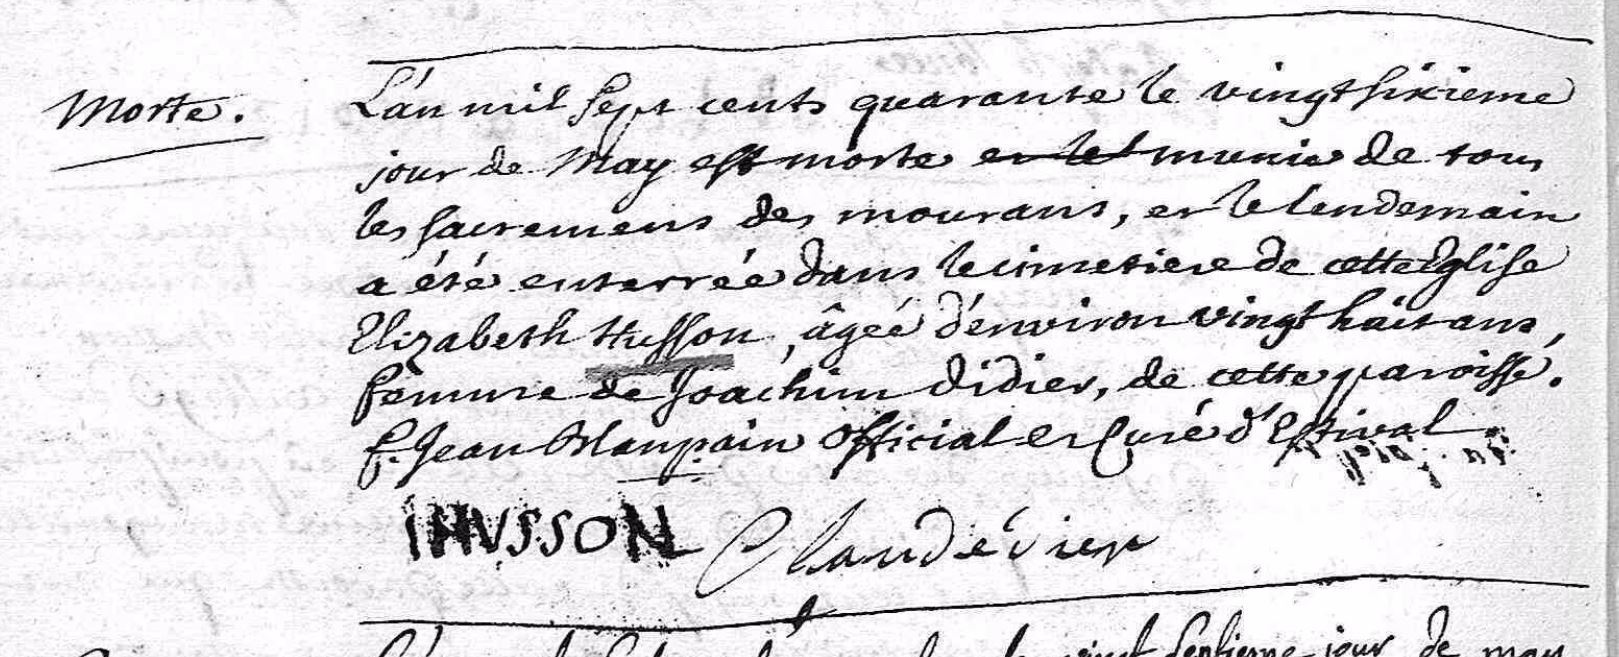 Morte.
L'an mil sept cents quarante le vingt sixieme
jour de May est morte et let munie de tous
les sacremens des mourans, et le lendemain
a été enterrée dans le cimetiere de cette Eglise
Elizabeth Husson, âgeé d'environ vingt huit ans,
femme de Joachim Didier, de cette paroisse.
f. Jean Blanpain Official et Curé d'Estival
I HVSSON Claudévier
vingt septieme jour de may